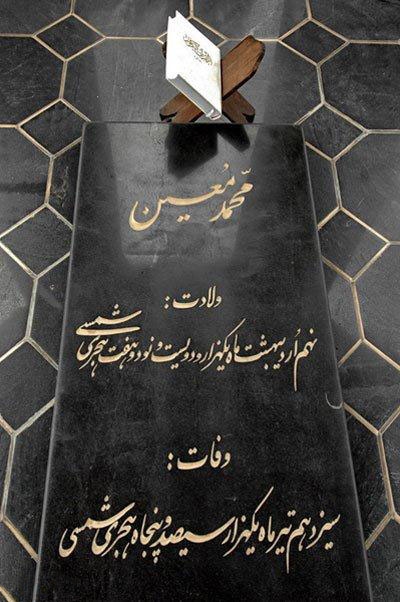 محمّد معین
ولادت :
نهم اُردیبهشت ماه یکهزار و دویست و نود و هفت هجری شمسی
وفات :
سیزدهم تیر ماه یکهزار سیصد و پنجاه هجری شمسی